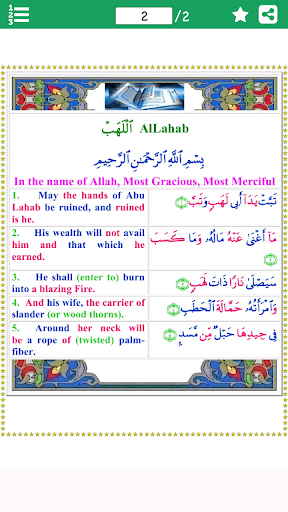 1 2 3
2 /2
ٱللَّهَبْ AlLahab
بِسْمِ ٱللَّهِ ٱلرَّحْمَٰنِ ٱلرَّحِيمِ
In the name of Allah, Most Gracious, Most Merciful
1. May the hands of Abu
Lahab be ruined, and ruined
is he.
تَبَّتْ يَدَآ أَبِى لَهَبٍ وَتَبَّ ١
2. His wealth will not avail
him and that which he
earned.
مَآ أَغْنَىٰ عَنْهُ مَالُهُۥ وَمَا كَسَبَ
٢
3. He shall (enter to) burn
into a blazing Fire.
سَيَصْلَىٰ نَارًا ذَاتَ لَهَبٍ ٣
4. And his wife, the carrier of
slander (or wood thorns).
وَٱمْرَأَتُهُۥ حَمَّالَةَ ٱلْحَطَبِ ٤
5. Around her neck will
be a rope of (twisted) palm-
fiber.
فِى جِيدِهَا حَبْلٌ مِّن مَّسَدٍۭ ٥